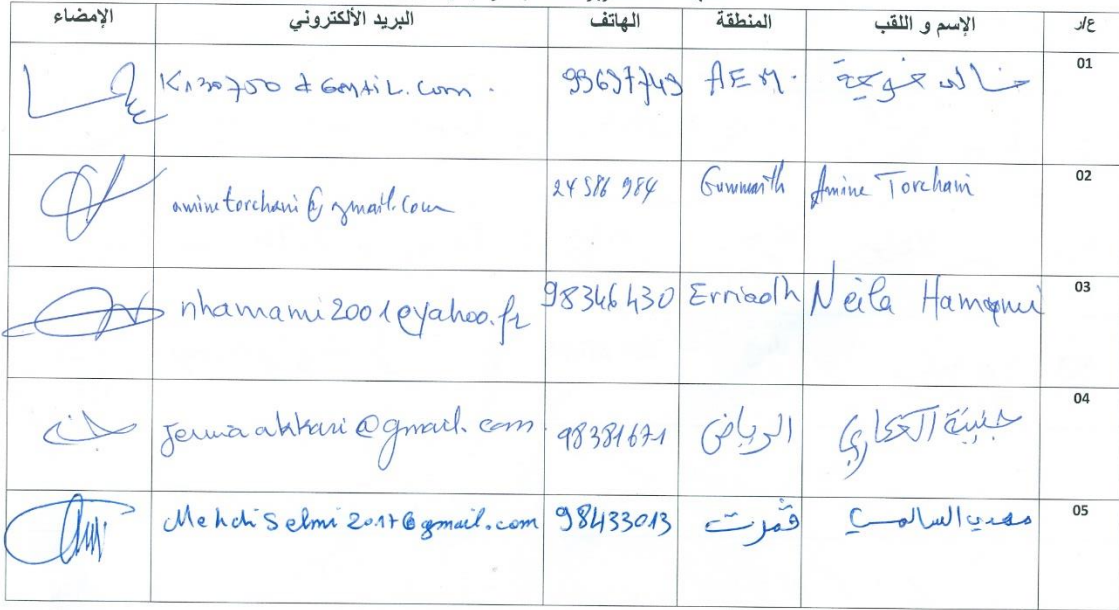 ع/ر الإسم و اللقب المنطقة الهاتف البريد الألكتروني الإمضاء
01 خالد خوجة AEM. 99697749
02 Amine Torchani Gummarth 24 586 984 aminetorchani@gmail.com
03 Neila Hamami Erriadh 98346430 nhamami2001@yahoo.fr
04 جنينة العكاري الرياض 98381671 Jennaakkari@gmail.com
05 مهدي السالمي قمرت 98433013 MehdiSelmi2017@gmail.com